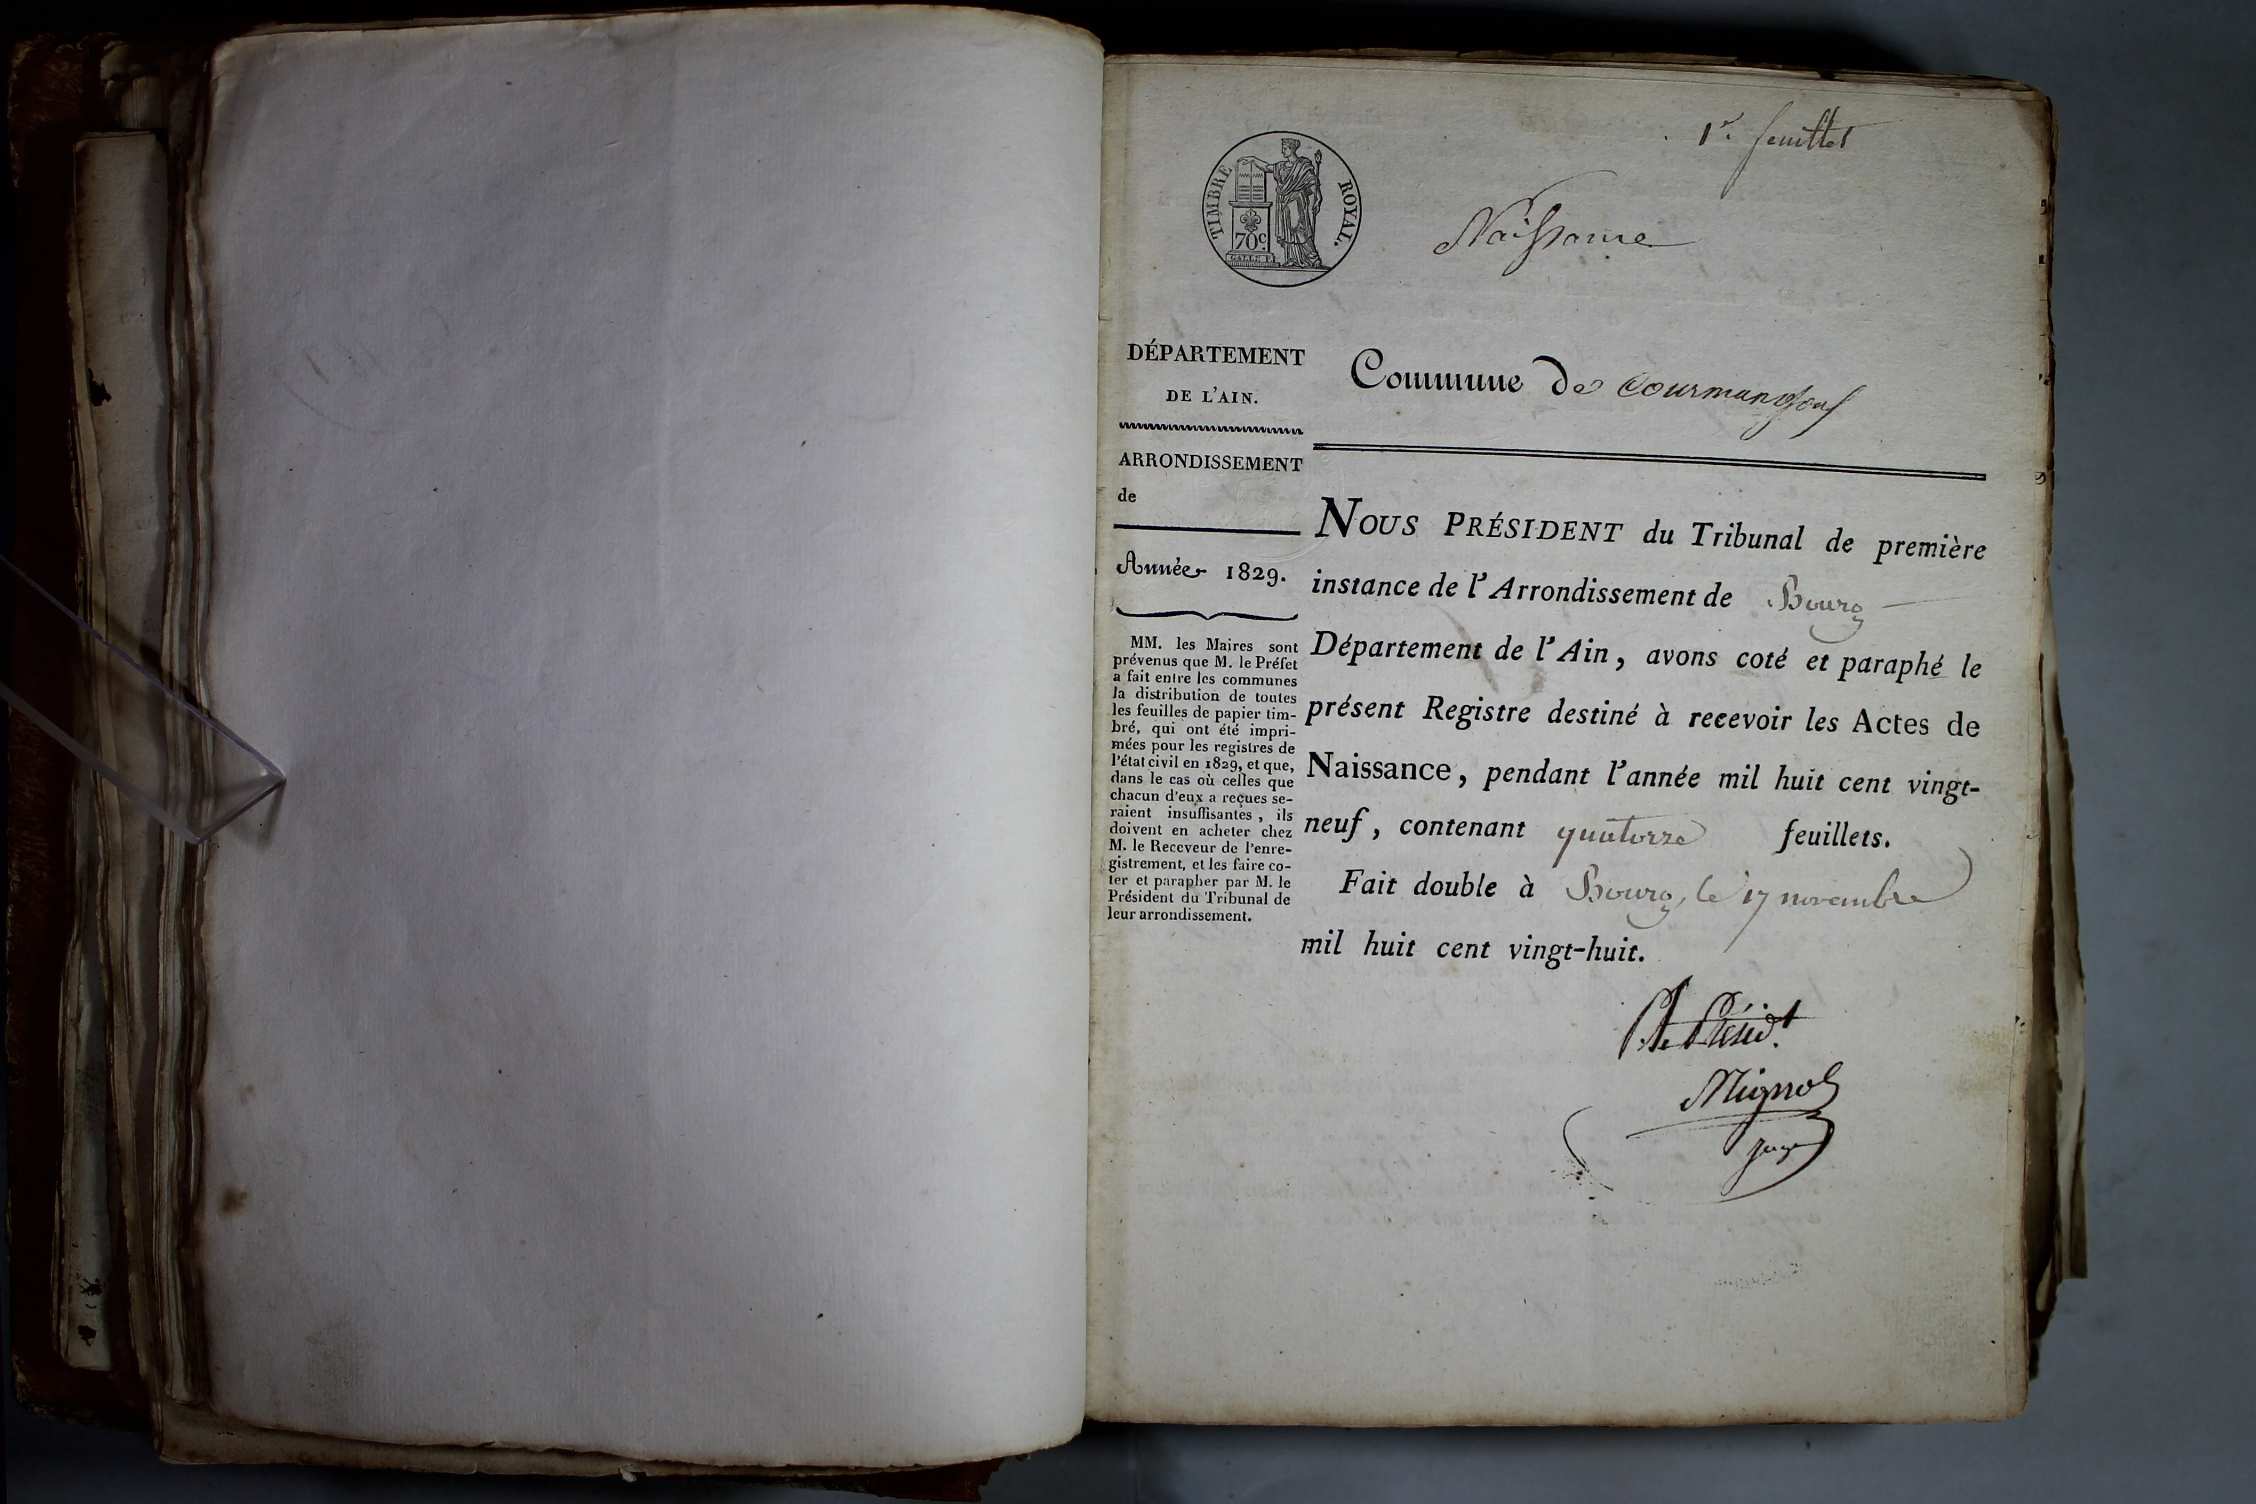 1r. feuillet
TIMBRE ROYAL.
70c.
Naissance
DÉPARTEMENT
DE L'AIN.
Commune de Courmangoux
ARRONDISSEMENT
de
Année 1829.
MM. les Maires sont
prévenus que M. le Préfet
a fait entre les communes
la distribution de toutes
les feuilles de papier tim-
bré, qui ont été impri-
mées pour les registres de
l'état civil en 1829, et que,
dans le cas où celles que
chacun d'eux a reçues se-
raient insuffisantes, ils
doivent en acheter chez
M. le Receveur de l'enre-
gistrement, et les faire co-
ter et parapher par M. le
Président du Tribunal de
leur arrondissement.
NOUS PRÉSIDENT du Tribunal de première
instance de l'Arrondissement de Bourg
Département de l'Ain, avons coté et paraphé le
présent Registre destiné à recevoir les Actes de
Naissance, pendant l'année mil huit cent vingt-
neuf, contenant quatorze feuillets.
Fait double à Bourg, le 17 novembre
mil huit cent vingt-huit.
Le Présidt.
Mignot
juge